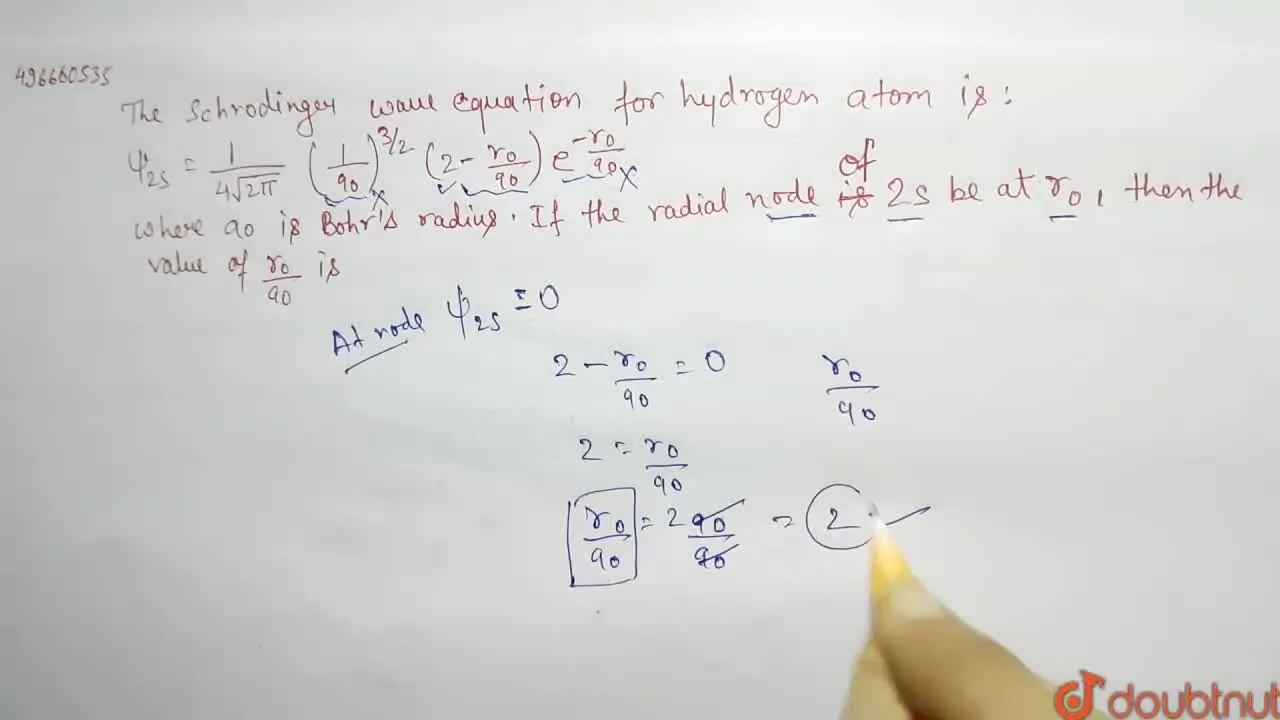 496660535
The Schrodinger wave equation for hydrogen atom is:
ψ2s = 1/4√2π (1/a0)^3/2 (2 - r0/a0) e^-r0/a0
where a0 is Bohr's radius. If the radial node of 2s be at r0, then the
value of r0/a0 is
At node ψ2s = 0
2 - r0/a0 = 0 r0/a0
2 = r0/a0
r0/a0 = 2 a0/a0 = 2
doubtnut